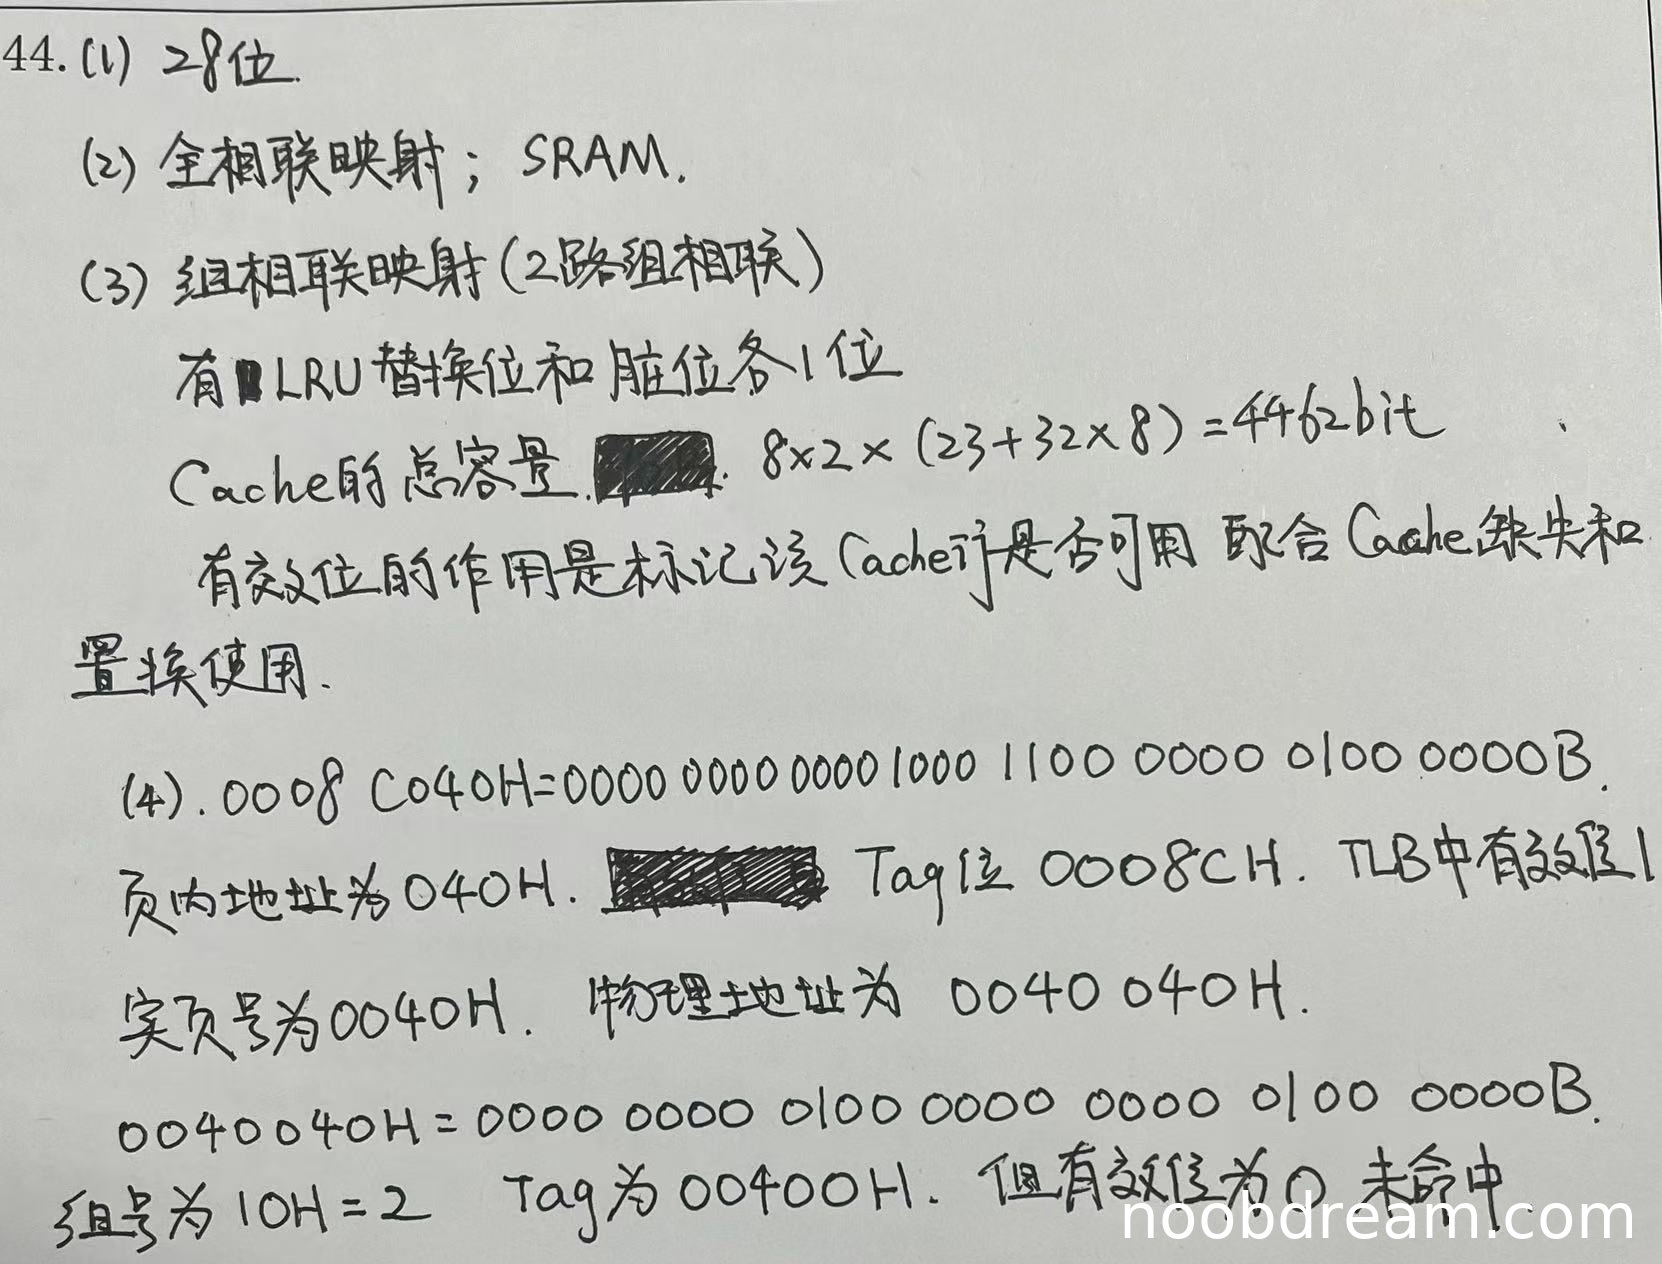 44.(1) 28位.
(2) 全相联映射; SRAM.
(3) 组相联映射(2路组相联)
有LRU替换位和脏位各1位
Cache的总容量. 8×2×(23+32×8)=4462bit
有效位的作用是标记该Cache行是否可用 配合Cache缺失和
置换使用.
(4). 0008 C040H=0000 0000 0000 1000 1100 0000 0100 0000B.
页内地址为040H. Tag位 0008CH. TLB中有效位1
实页号为0040H. 物理地址为 0040 040H.
0040040H=0000 0000 0100 0000 0000 0100 0000B.
组号为10H=2 Tag为00400H. 但有效位为0 未命中
noobdream.com